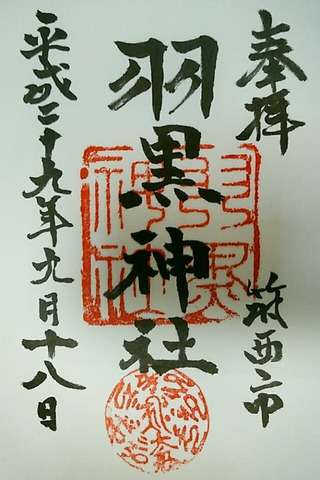 奉拝
筑西市
羽黒神社
平成二十九年九月十八日
羽黒神社